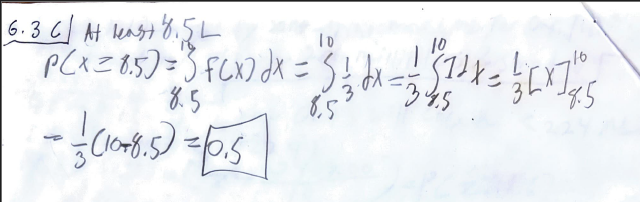 6.3 c) At least 8.5L
P(X ≥ 8.5) = ∫_{8.5}^{10} f(x) dx = ∫_{8.5}^{10} 1/3 dx = 1/3 ∫_{8.5}^{10} 1 dx = 1/3 [x]_{8.5}^{10}
= 1/3 (10-8.5) = 0.5